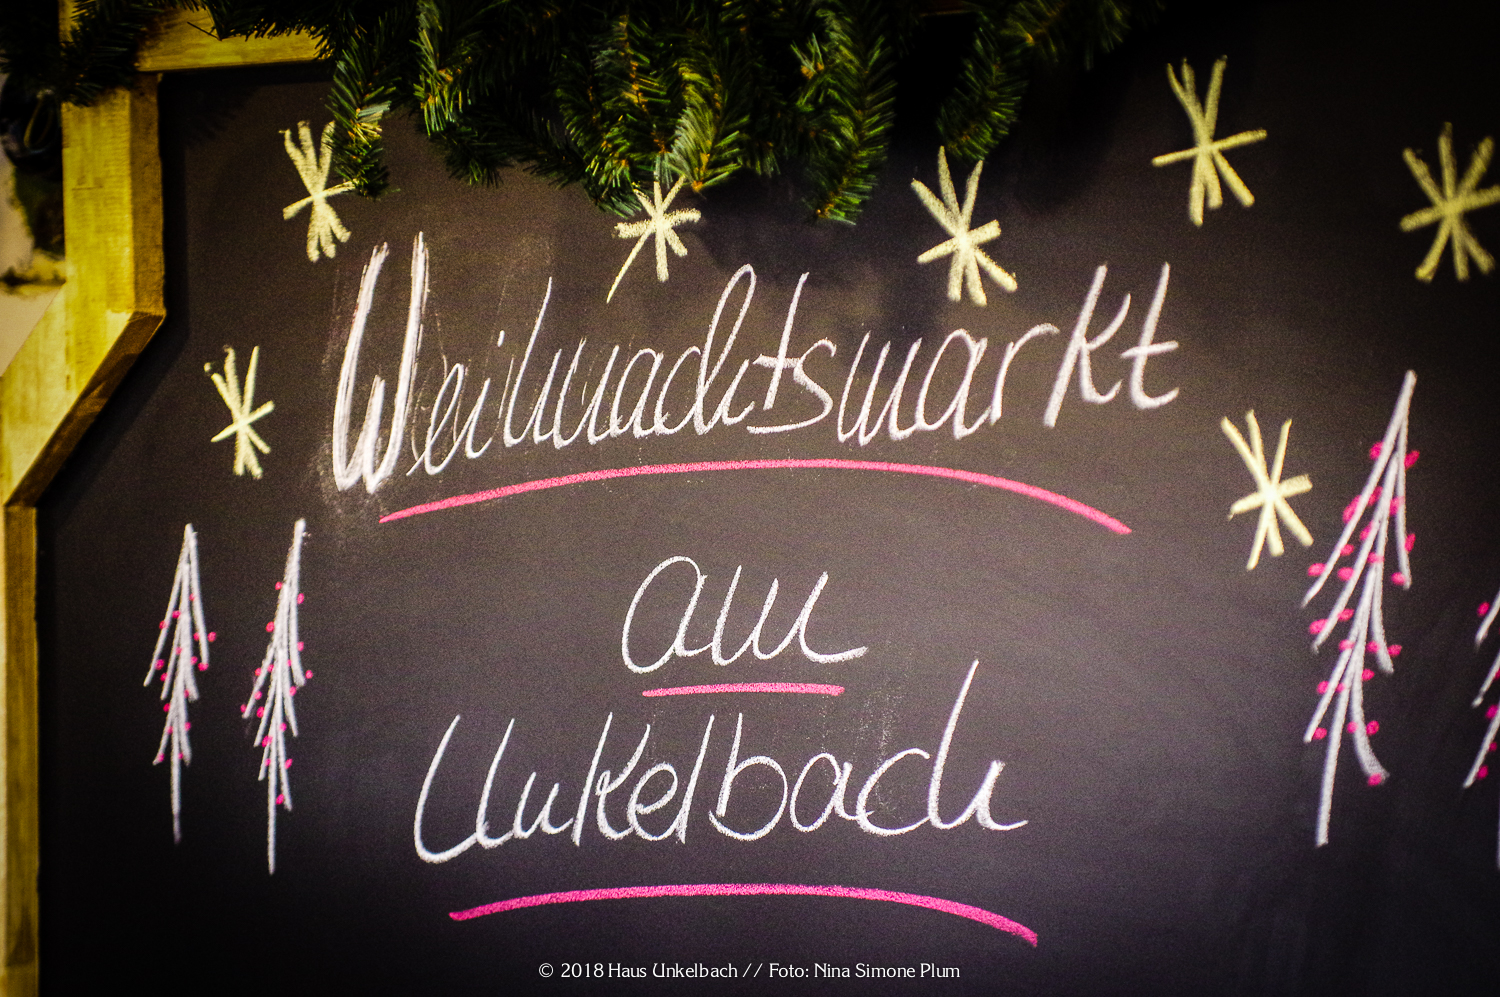 Weihnachtsmarkt
am
Unkelbach
© 2018 Haus Unkelbach // Foto: Nina Simone Plum